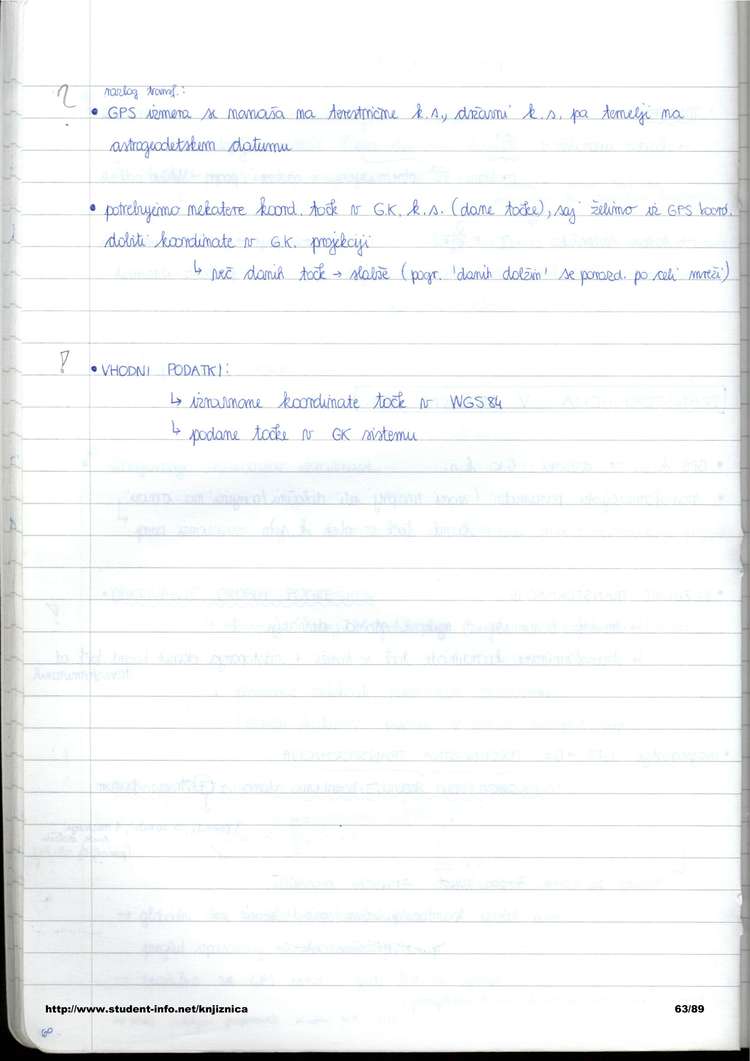 ?
razlog transf.:
• GPS izmera se nanaša na terestrične k.s., državni k.s. pa temelji na
astrogeodetskem datumu
• potrebujemo nekatere koord. točk v G.K. k.s. (dane točke), saj želimo iz GPS koord.
dobiti koordinate v G.K. projekciji
↳ več danih točk → slabše (pogr. 'danih dolžin' se porazd. po celi mreži)
!
• VHODNI PODATKI:
↳ izravnane koordinate točk v WGS84
↳ podane točke v GK sistemu
http://www.student-info.net/knjiznica 63/89
60